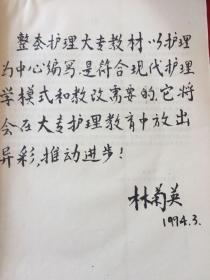 整套护理大专教材以护理
为中心编写,是符合现代护理
学模式和教改需要的,它将
会在大专护理教育中放出
异彩,推动进步!
林菊英
1994.3.